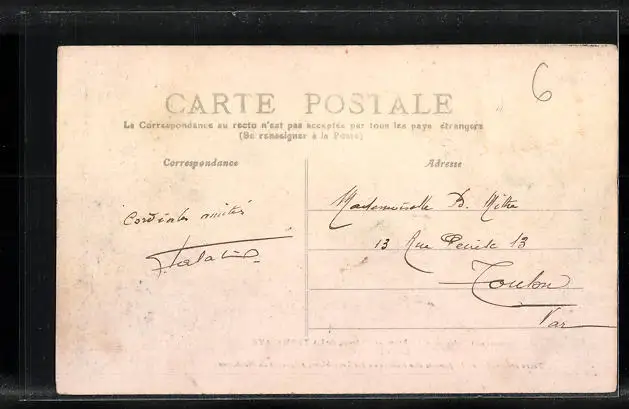 6
CARTE POSTALE
La Correspondance au recto n'est pas acceptée par tous les pays étrangers
(Se renseigner à la Poste)
Correspondance
Adresse
Cordiales amitiés
Mademoiselle D. Mitre
13 Rue 13
Toulon
Var